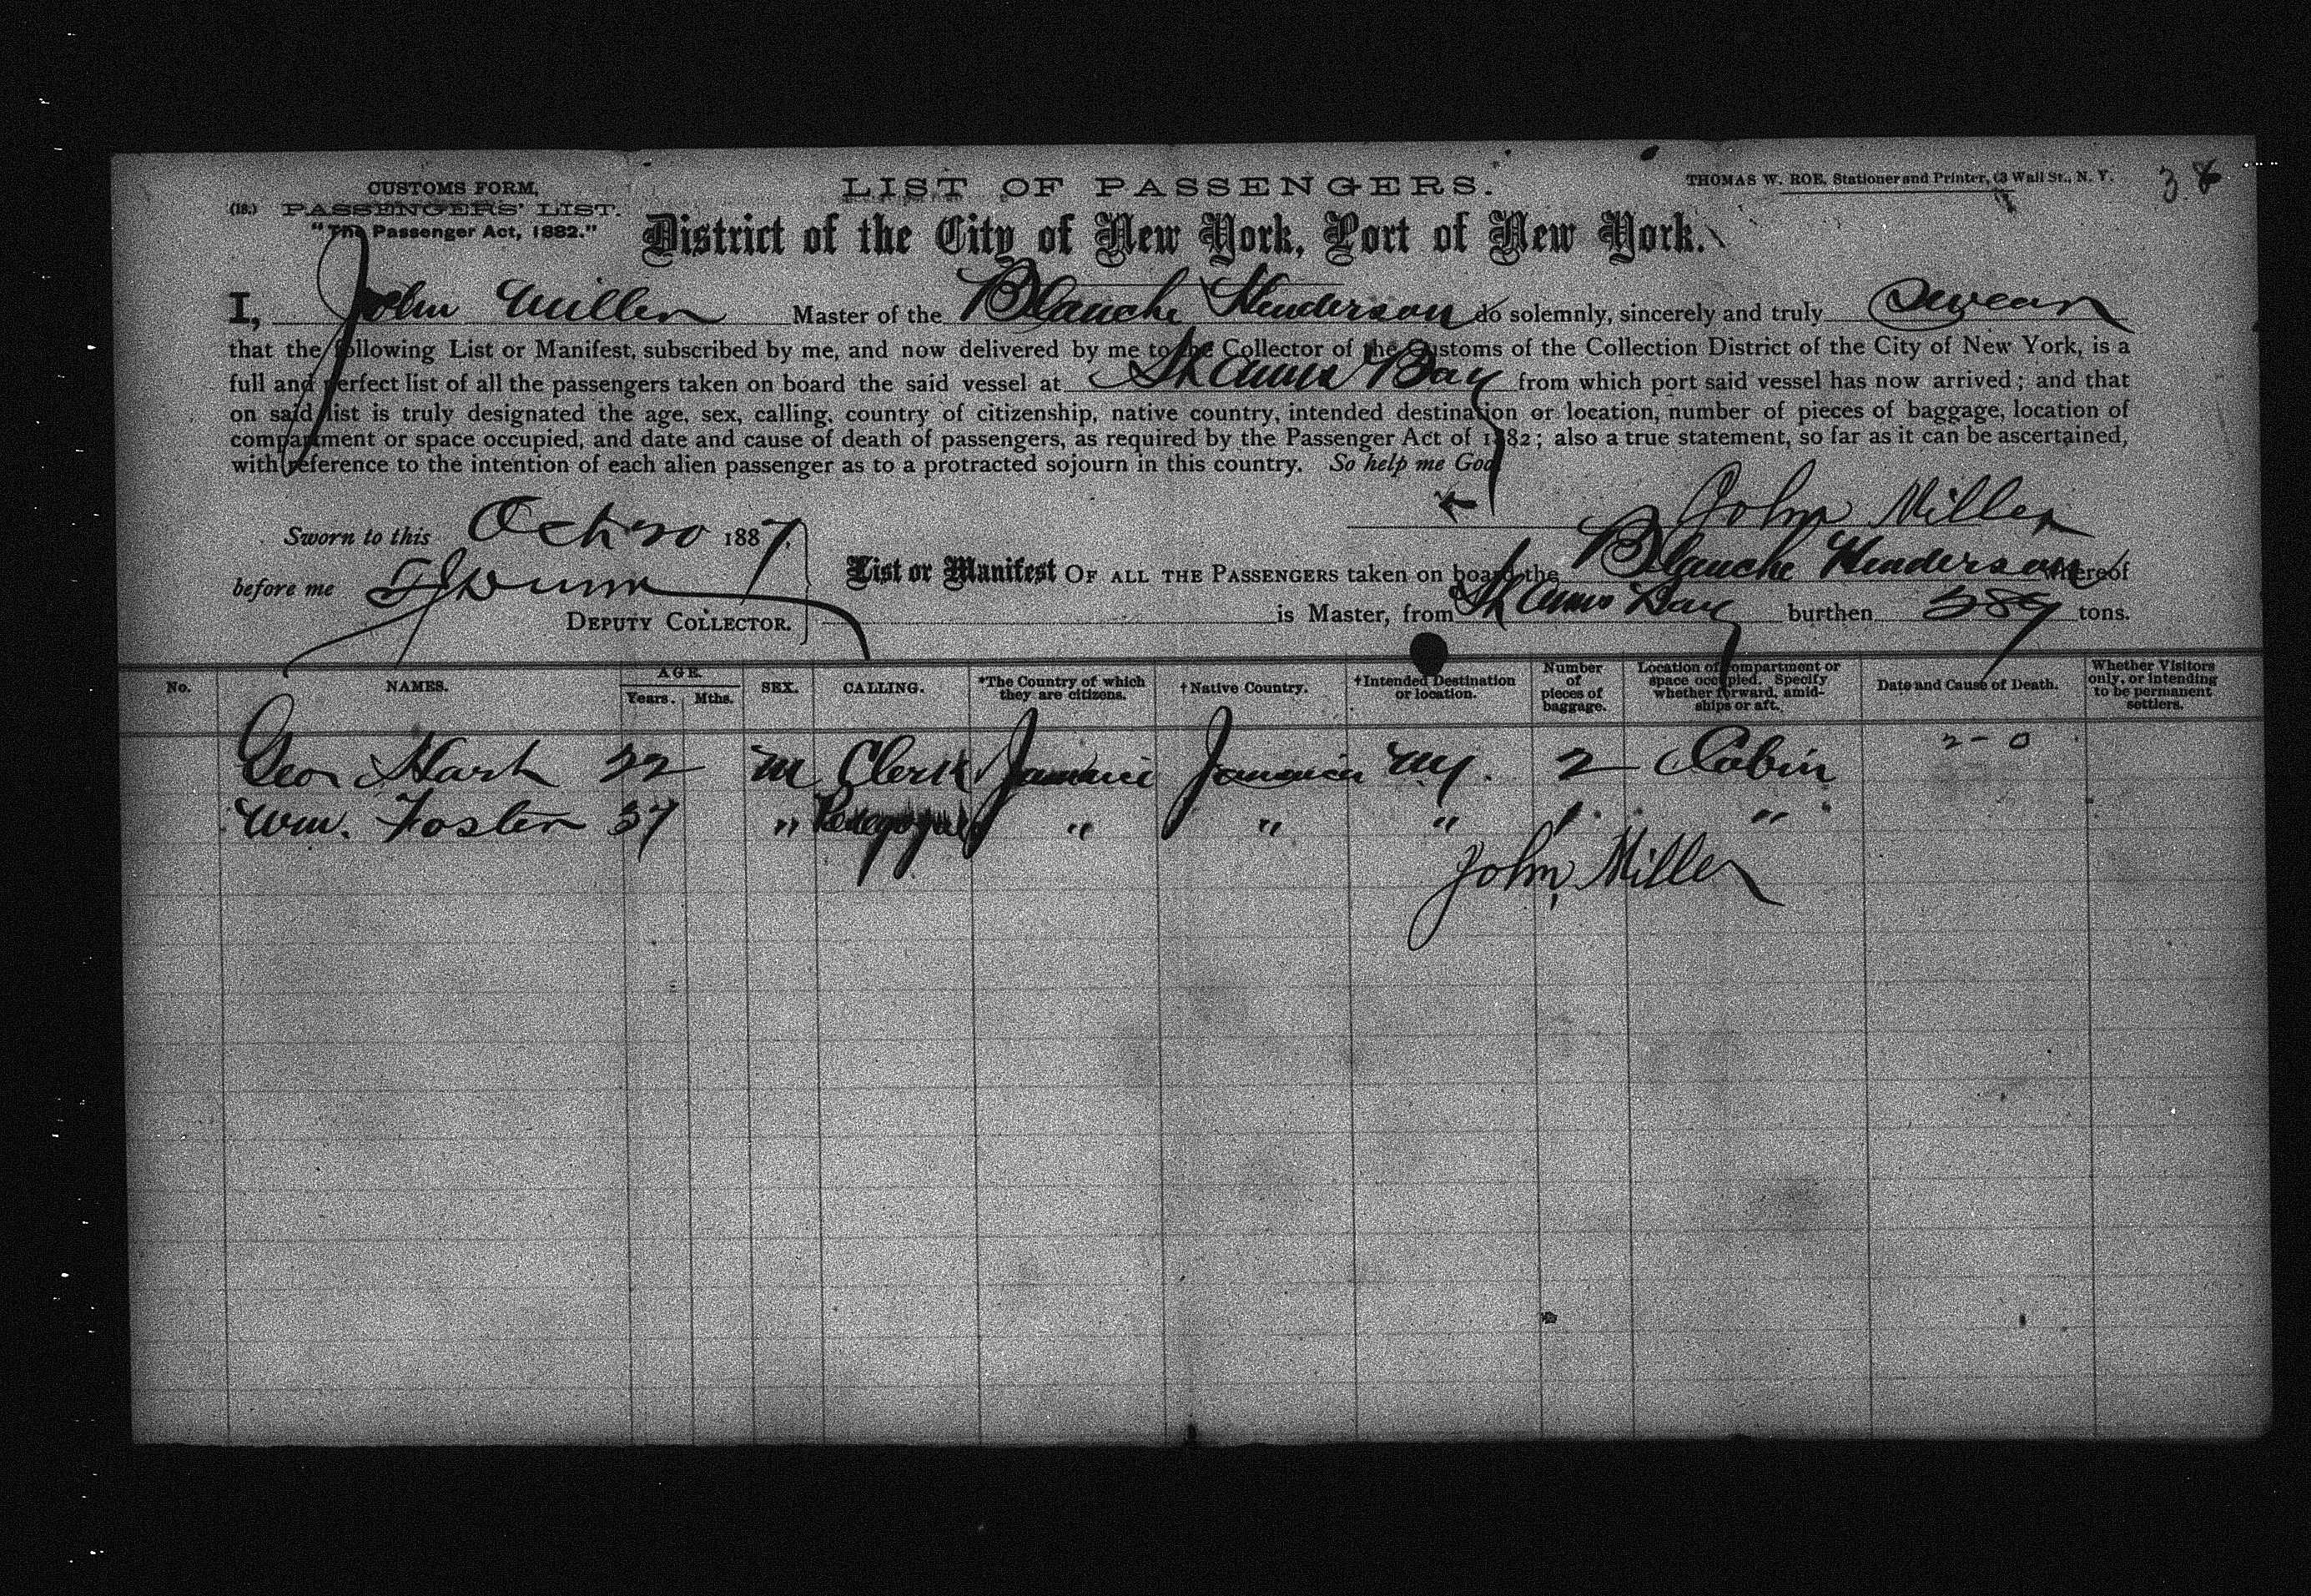 CUSTOMS FORM,
(18.) PASSENGERS' LIST.
"The Passenger Act, 1882."
LIST OF PASSENGERS.
THOMAS W. ROE, Stationer and Printer, 63 Wall St., N. Y.
District of the City of New York, Port of New York.
I, John Miller Master of the Blanche Henderson do solemnly, sincerely and truly swear
that the following List or Manifest, subscribed by me, and now delivered by me to the Collector of the Customs of the Collection District of the City of New York, is a
full and perfect list of all the passengers taken on board the said vessel at St Anns Bay from which port said vessel has now arrived; and that
on said list is truly designated the age, sex, calling, country of citizenship, native country, intended destination or location, number of pieces of baggage, location of
compartment or space occupied, and date and cause of death of passengers, as required by the Passenger Act of 1882; also a true statement, so far as it can be ascertained,
with reference to the intention of each alien passenger as to a protracted sojourn in this country. So help me God
John Miller
Sworn to this Oct 20 1887,
before me Dunn
DEPUTY COLLECTOR.
List or Manifest OF ALL THE PASSENGERS taken on board the Blanche Henderson whereof
is Master, from St Anns Bay burthen tons.
No. NAMES. AGE. Years. Mths. SEX. CALLING. *The Country of which they are citizens. †Native Country. †Intended Destination or location. Number of pieces of baggage. Location of compartment or space occupied. Specify whether forward, amidships or aft. Date and Cause of Death. Whether Visitors only, or intending to be permanent settlers.
Geo Hart 22 M Clerk Jamaica Jamaica NY. 2 Cabin 2-0
Wm. Foster 37 " " " " 1. "
John Miller